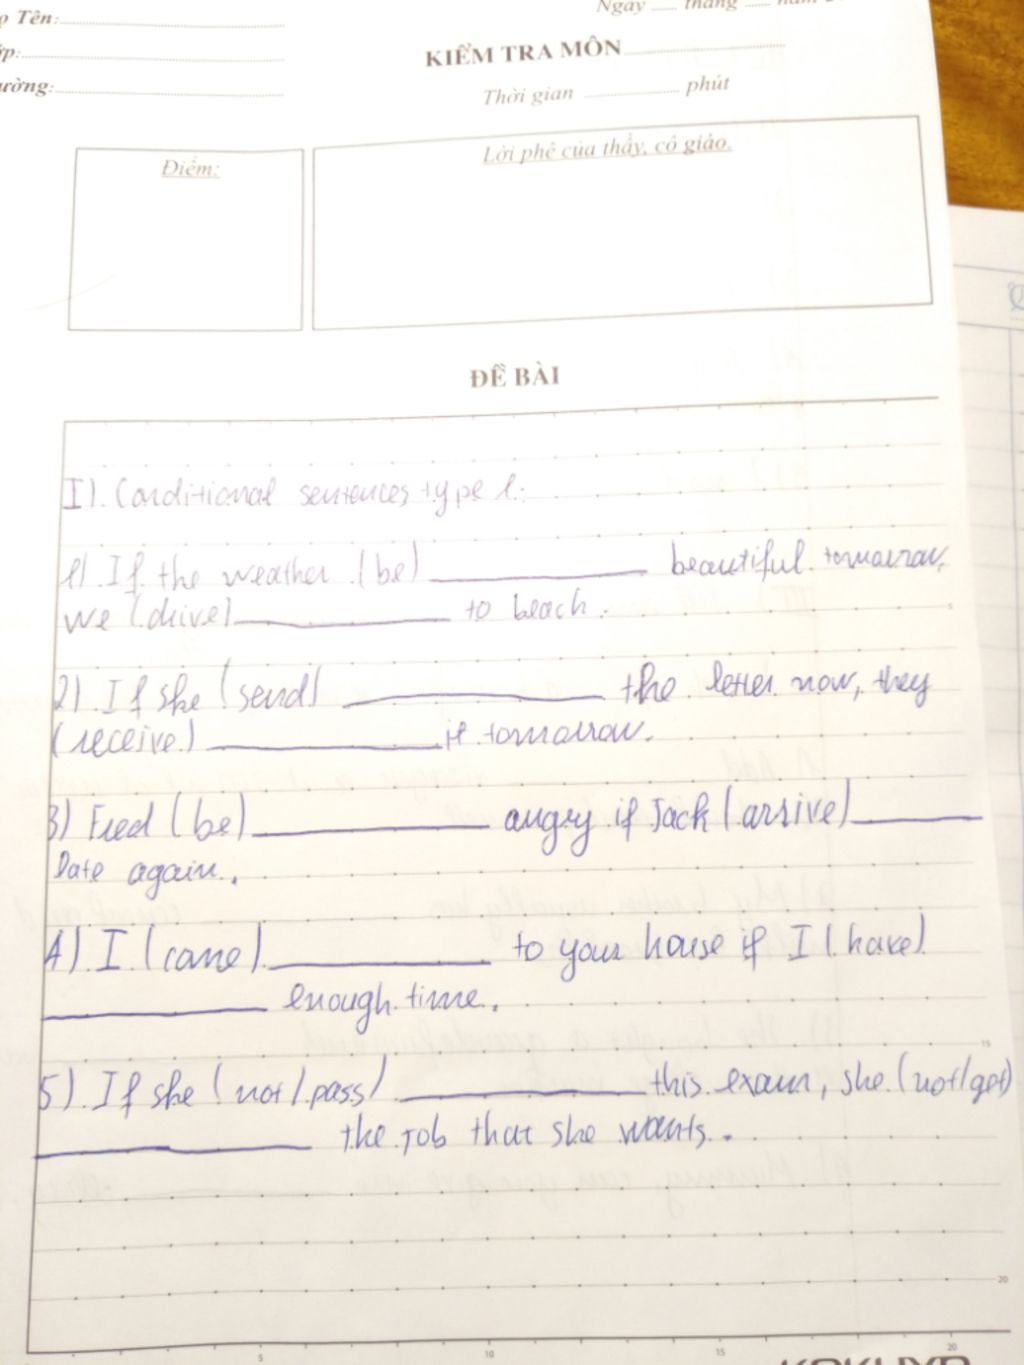 Tên:
Ngày tháng
KIỂM TRA MÔN
Thời gian phút
Điểm:
Lời phê của thầy, cô giáo.
ĐỀ BÀI
I). Conditional sentences type 1:
1). If the weather (be) ____ beautiful tomorrow,
we (drive) ____ to beach.
2). If she (send) ____ the letter now, they
(receive) ____ it tomorrow.
3) Fred (be) ____ angry if Jack (arrive) ____
late again.
4). I (come) ____ to your house if I (have)
____ enough time.
5). If she (not/pass) ____ this exam, she (not/get)
____ the job that she wants.
5
15
20
5 10 15 20